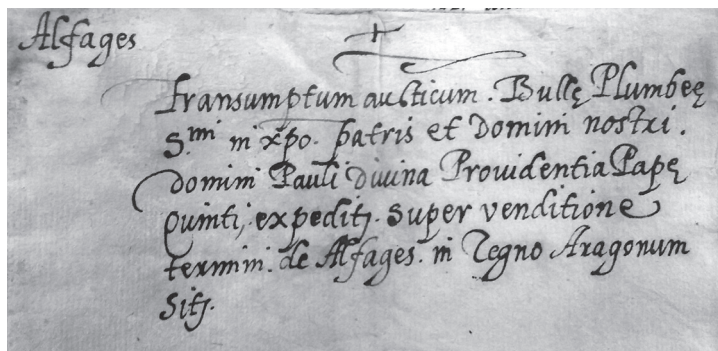 Alfages
+
Transumptum aucticum. Bullę Plumbeę
S.mi in xpo. patris et Domini nostri.
Domini Pauli Divina Providentia Papę
Quinti, expeditj. super venditione
termini. de Alfages. in Regno Aragonum
Sitj.